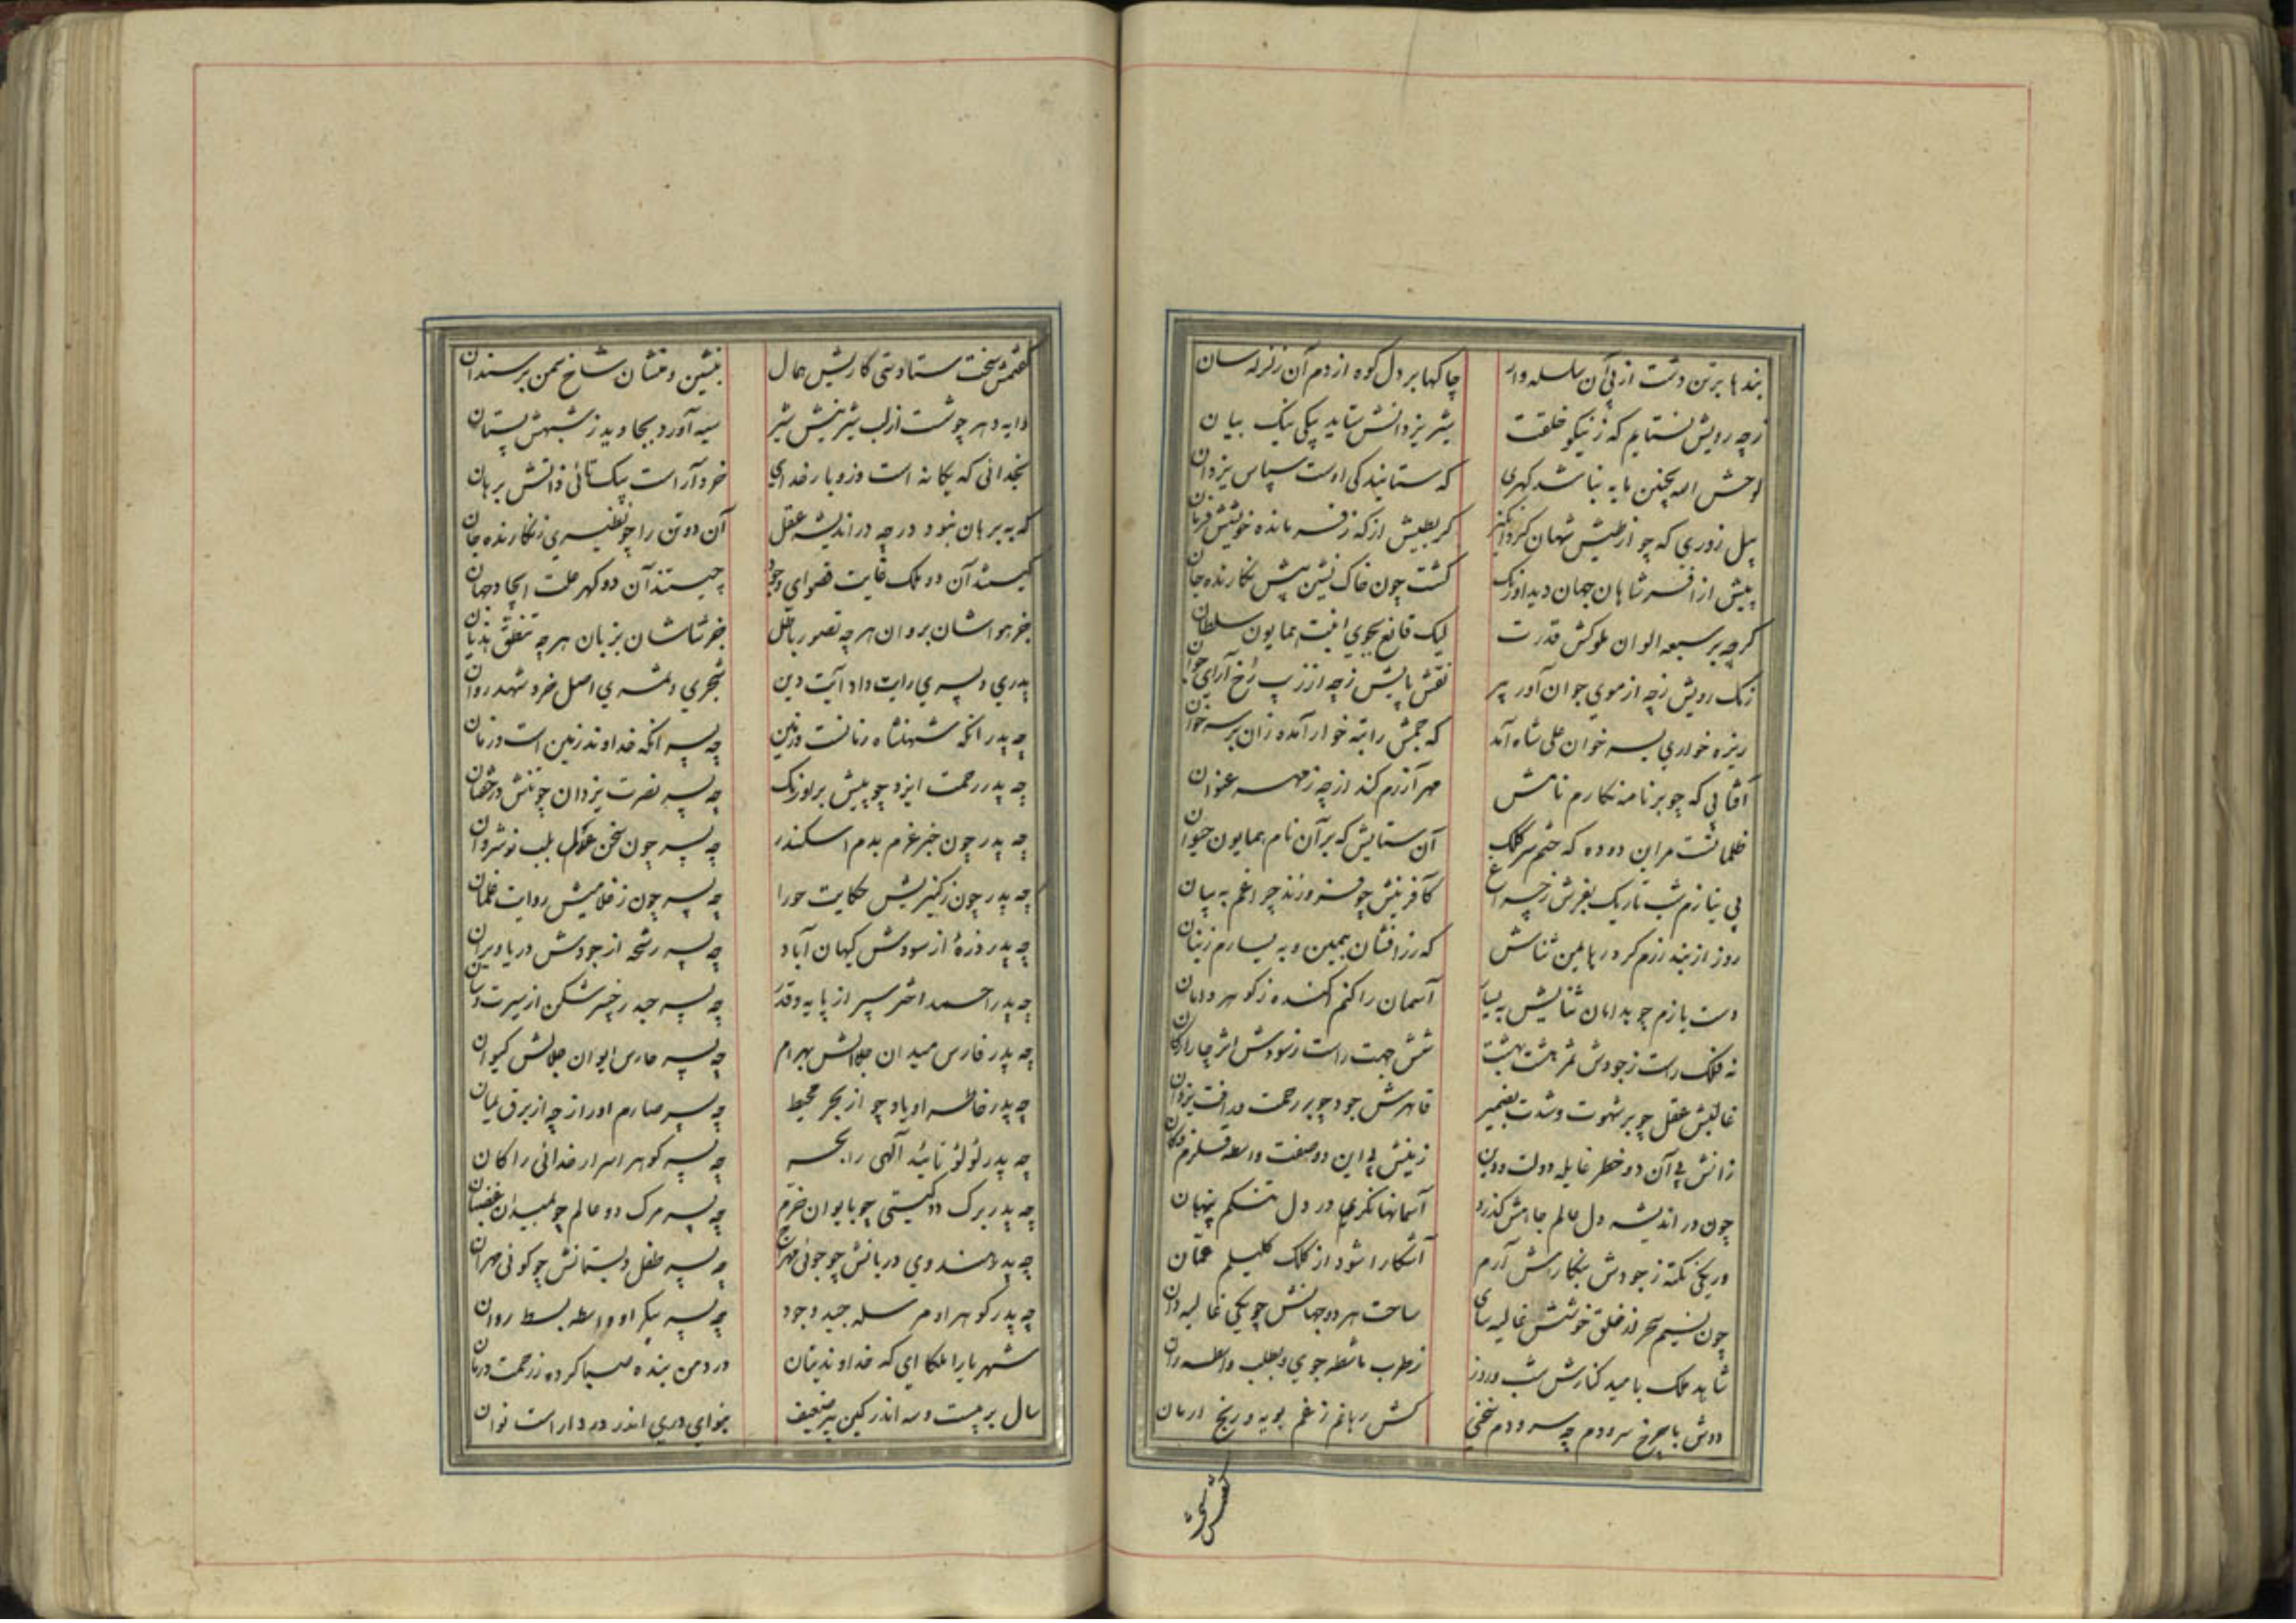 بندها بر تن دشت از پی آن سلسله وار چاکها بر دل کوه از دم آن زلزله سان
زچه رویش نستایم که ز نیکو خلقت بیزدانش ستاید پیکی نیک بیان
لوحش الله بچنین پایه نباشد کهری که ستایندکی اوست سپاس یزدان
پیل زوری که چو از طیش شهان
پیش از افسر شاهان جهان دید اورنک کشت چون خاک نشین پیش نکارنده جان
کرچه بر سبعه الوان ملوکش قدرت لیک قانع بجوی افت همایون سلطان
رنک رویش زچه از موی جوان آور پیر نقش پایش زچه از زیب رخ آرای جوان
ریزه خواری بسر خوان علی شاه آمد که جمش راتبه خوار آمده زان بر سر خوان
آفتابی که چو بر نامه نکارم نامش مهر آزرم کند از چه ز مهر عنوان
ظلماتست مر این دوده که ختم سر کلک آن ستایش که بر آن نام همایون حیوان
بی نیازم شب تاریک بفرش ز چراغ کافرینش چو فروزند چراغم به بیان
روز از بند رزم کرد ثناش که زر افشان بیمین و به یسارم
دست یازم چو بدامان ثنایش به یسار آسمان را کنم آکنده ز کوهر دامان
نه فلک راست ز جودش ثمر هشت بهشت شش جهت راست ز سودش اثر چار ارکان
غالبش عقل چو بر شهوت و شدت بضمیر قاهرش جود چو بر رحمت و رافت یزدان
زانش پی آن دو خطر غایله دولت و دین زینش پی این دو صفت واسطه قلزم و کان
چون در اندیشه دل عالم جاهش کذرد آسمانها نکری در دل تنکم پنهان
ور یکی نکته ز جودش بنکارش آرم آشکارا شود از کلک کلیلم عمان
چون نسیم سحر از خلق خوشش غالیه سای ساحت هر دو جهانش چو یکی غالیه دان
شاهد ملک بامید کنارش شب و روز ز طرب ماشطه جوی و بطلب واسطه ران
دوش با چرخ سرودم چه سرودم سخنی کش رهانم ز غم پویه و رنج ارمان
کفتمش سخت ستادستی کاریش همال بنشین و منشان شاخ سمن بر سندان
دایه دهر چو شست از لب شیرینش شیر سیه آورد بجاوید ز شبهش پستان
بخدائی که یکانه است و زو بار خدای خرد آراست بیکتائی ذاتش برهان
که به برهان نبود در چه در اندیشه عقل آن دو تن را چو نظیری ز نکارنده جان
کیستند آن دو ملک غایت قصوای وجود چیستند آن دو کهر علت ایجاد جهان
جز هواشان بروان هر چه تصور باطل جز ثناشان بزبان هر چه تنطق هذیان
پدری و پسری رایت داد آیت دین شجری و ثمری اصل خرد شهد روان
چه پدر آنکه شهنشاه زمانست و زمین چه پسر آنکه خداوند زمین است و زمان
چه پدر رحمت ایزد چو ببینیش بر اورنک چه پسر نصرت یزدان چو تنش در خفتان
چه پدر چون خبر عزم بدم اسکندر چه پسر چون سخن عدل بلب نوشروان
چه پدر چون ز کنیزیش حکایت حورا چه پسر چون ز غلامیش روایت غلمان
چه پدر ذرهٔ از سودش کیهان آباد چه پسر رشحه از جودش دریا ویران
چه پدر احمد اختر سپر از پایه و قدر چه پسر حیدر خیبر شکن از سیرت و سان
چه پدر فارس میدان جلالش بهرام چه پسر حارس ایوان جلالش کیوان
چه پدر خاطر او یاد چو از بحر محیط چه پسر صارم او را ز چه از برق یمان
چه پدر لؤلؤ تائید آلهی را بحر چه پسر کوهر اسرار خدائی را کان
چه پدر برک دو کیتی چو بایوان خرم چه پسر مرک دو عالم چو بمیدان غضبان
چه پدر هندوی دربانش چو جوئی مهراج چه پسر طفل دبستانش چو کوئی مهران
چه پدر کوهر او مرسله جید وجود چه پسر پیکر او واسطه بسط روان
شهریارا ملکا ای که خداوندیتان درد من بنده صبا کرده ز رحمت درمان
سال بر بیست و سه اندر کین پیر ضعیف بنوای دری اندر در داراست نوان
کفتمش سخت